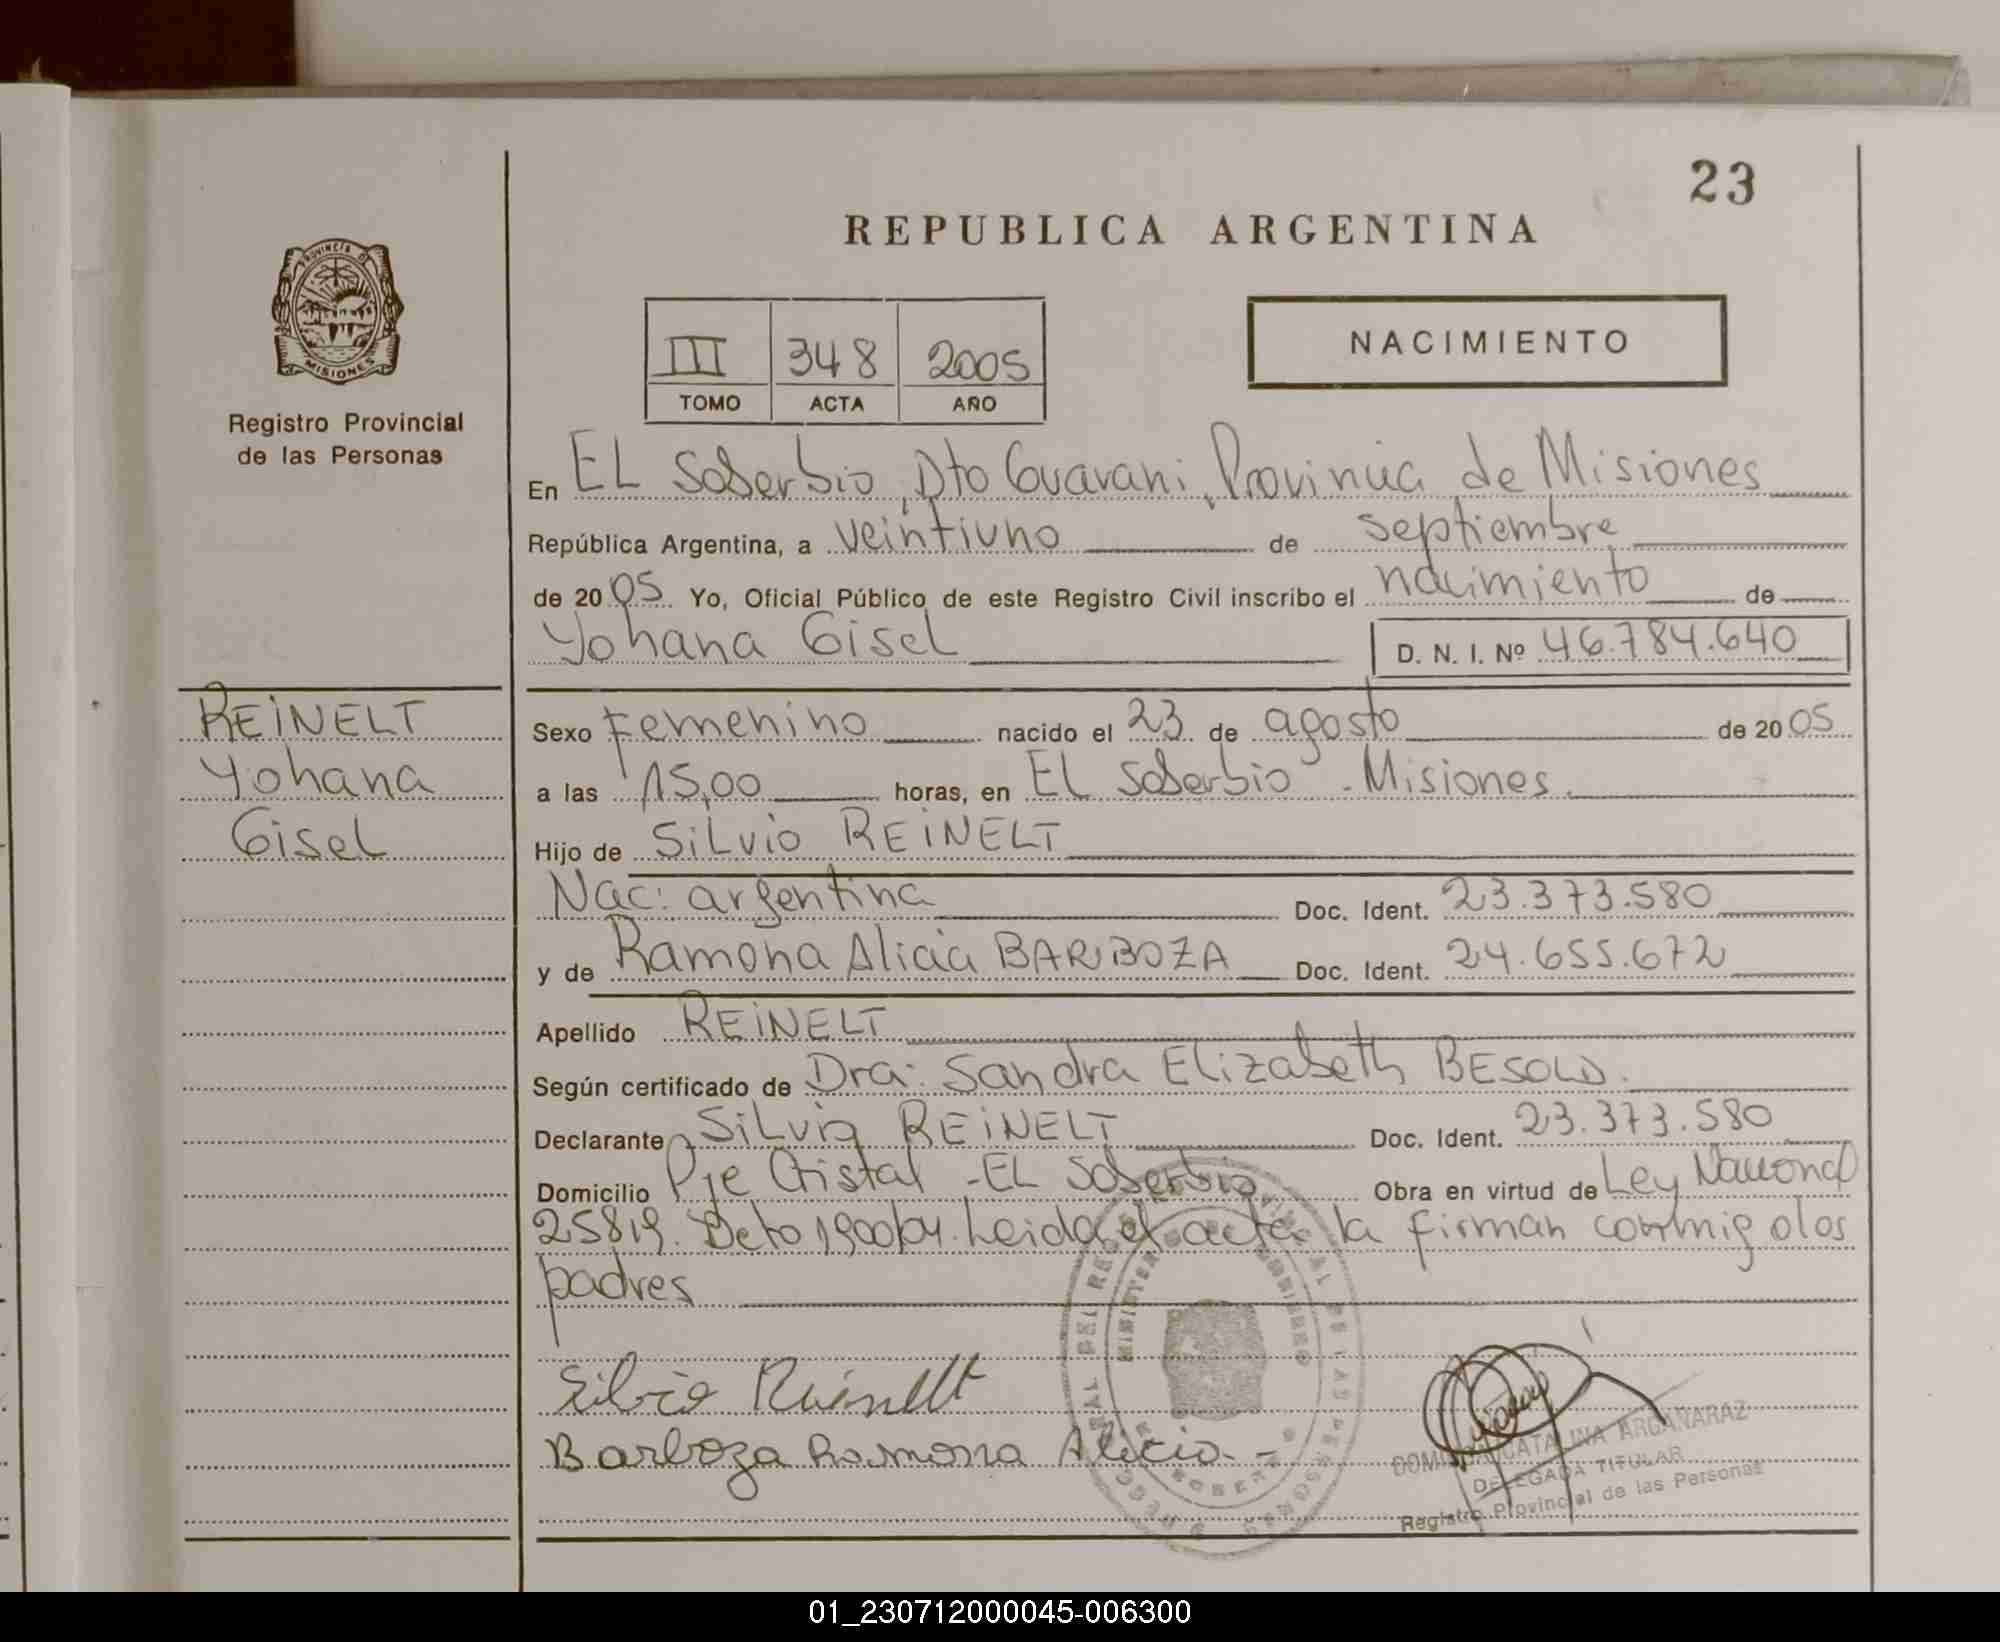 23
REPUBLICA ARGENTINA
PROVINCIA D
MISIONES
Registro Provincial
de las Personas
III 348 2005
TOMO ACTA AÑO
NACIMIENTO
En EL Soberbio, Dto Guarani, Provincia de Misiones
República Argentina, a veintiuno de septiembre
de 2005 Yo, Oficial Público de este Registro Civil inscribo el nacimiento de
Yohana Gisel D. N. I. Nº 46.784.640
REINELT
Yohana
Gisel
Sexo Femenino nacido el 23 de agosto de 2005
a las 15,00 horas, en EL Soberbio - Misiones.
Hijo de Silvio REINELT
Nac: argentina Doc. Ident. 23.373.580
y de Ramona Alicia BARBOZA Doc. Ident. 24.655.672
Apellido REINELT
Según certificado de Dra: Sandra Elizabeth BESOLD.
Declarante Silvio REINELT Doc. Ident. 23.373.580
Domicilio Pje Cristal - EL Soberbio. Obra en virtud de Ley Nacional
25819. Dcto 1900/04. Leida el acta la firman conmigo los
padres
Silvio Reinelt
Barboza Ramona Alicia. -
DOMINGA CATALINA ARGAÑARAZ
DELEGADA TITULAR
Registro Provincial de las Personas
01_230712000045-006300